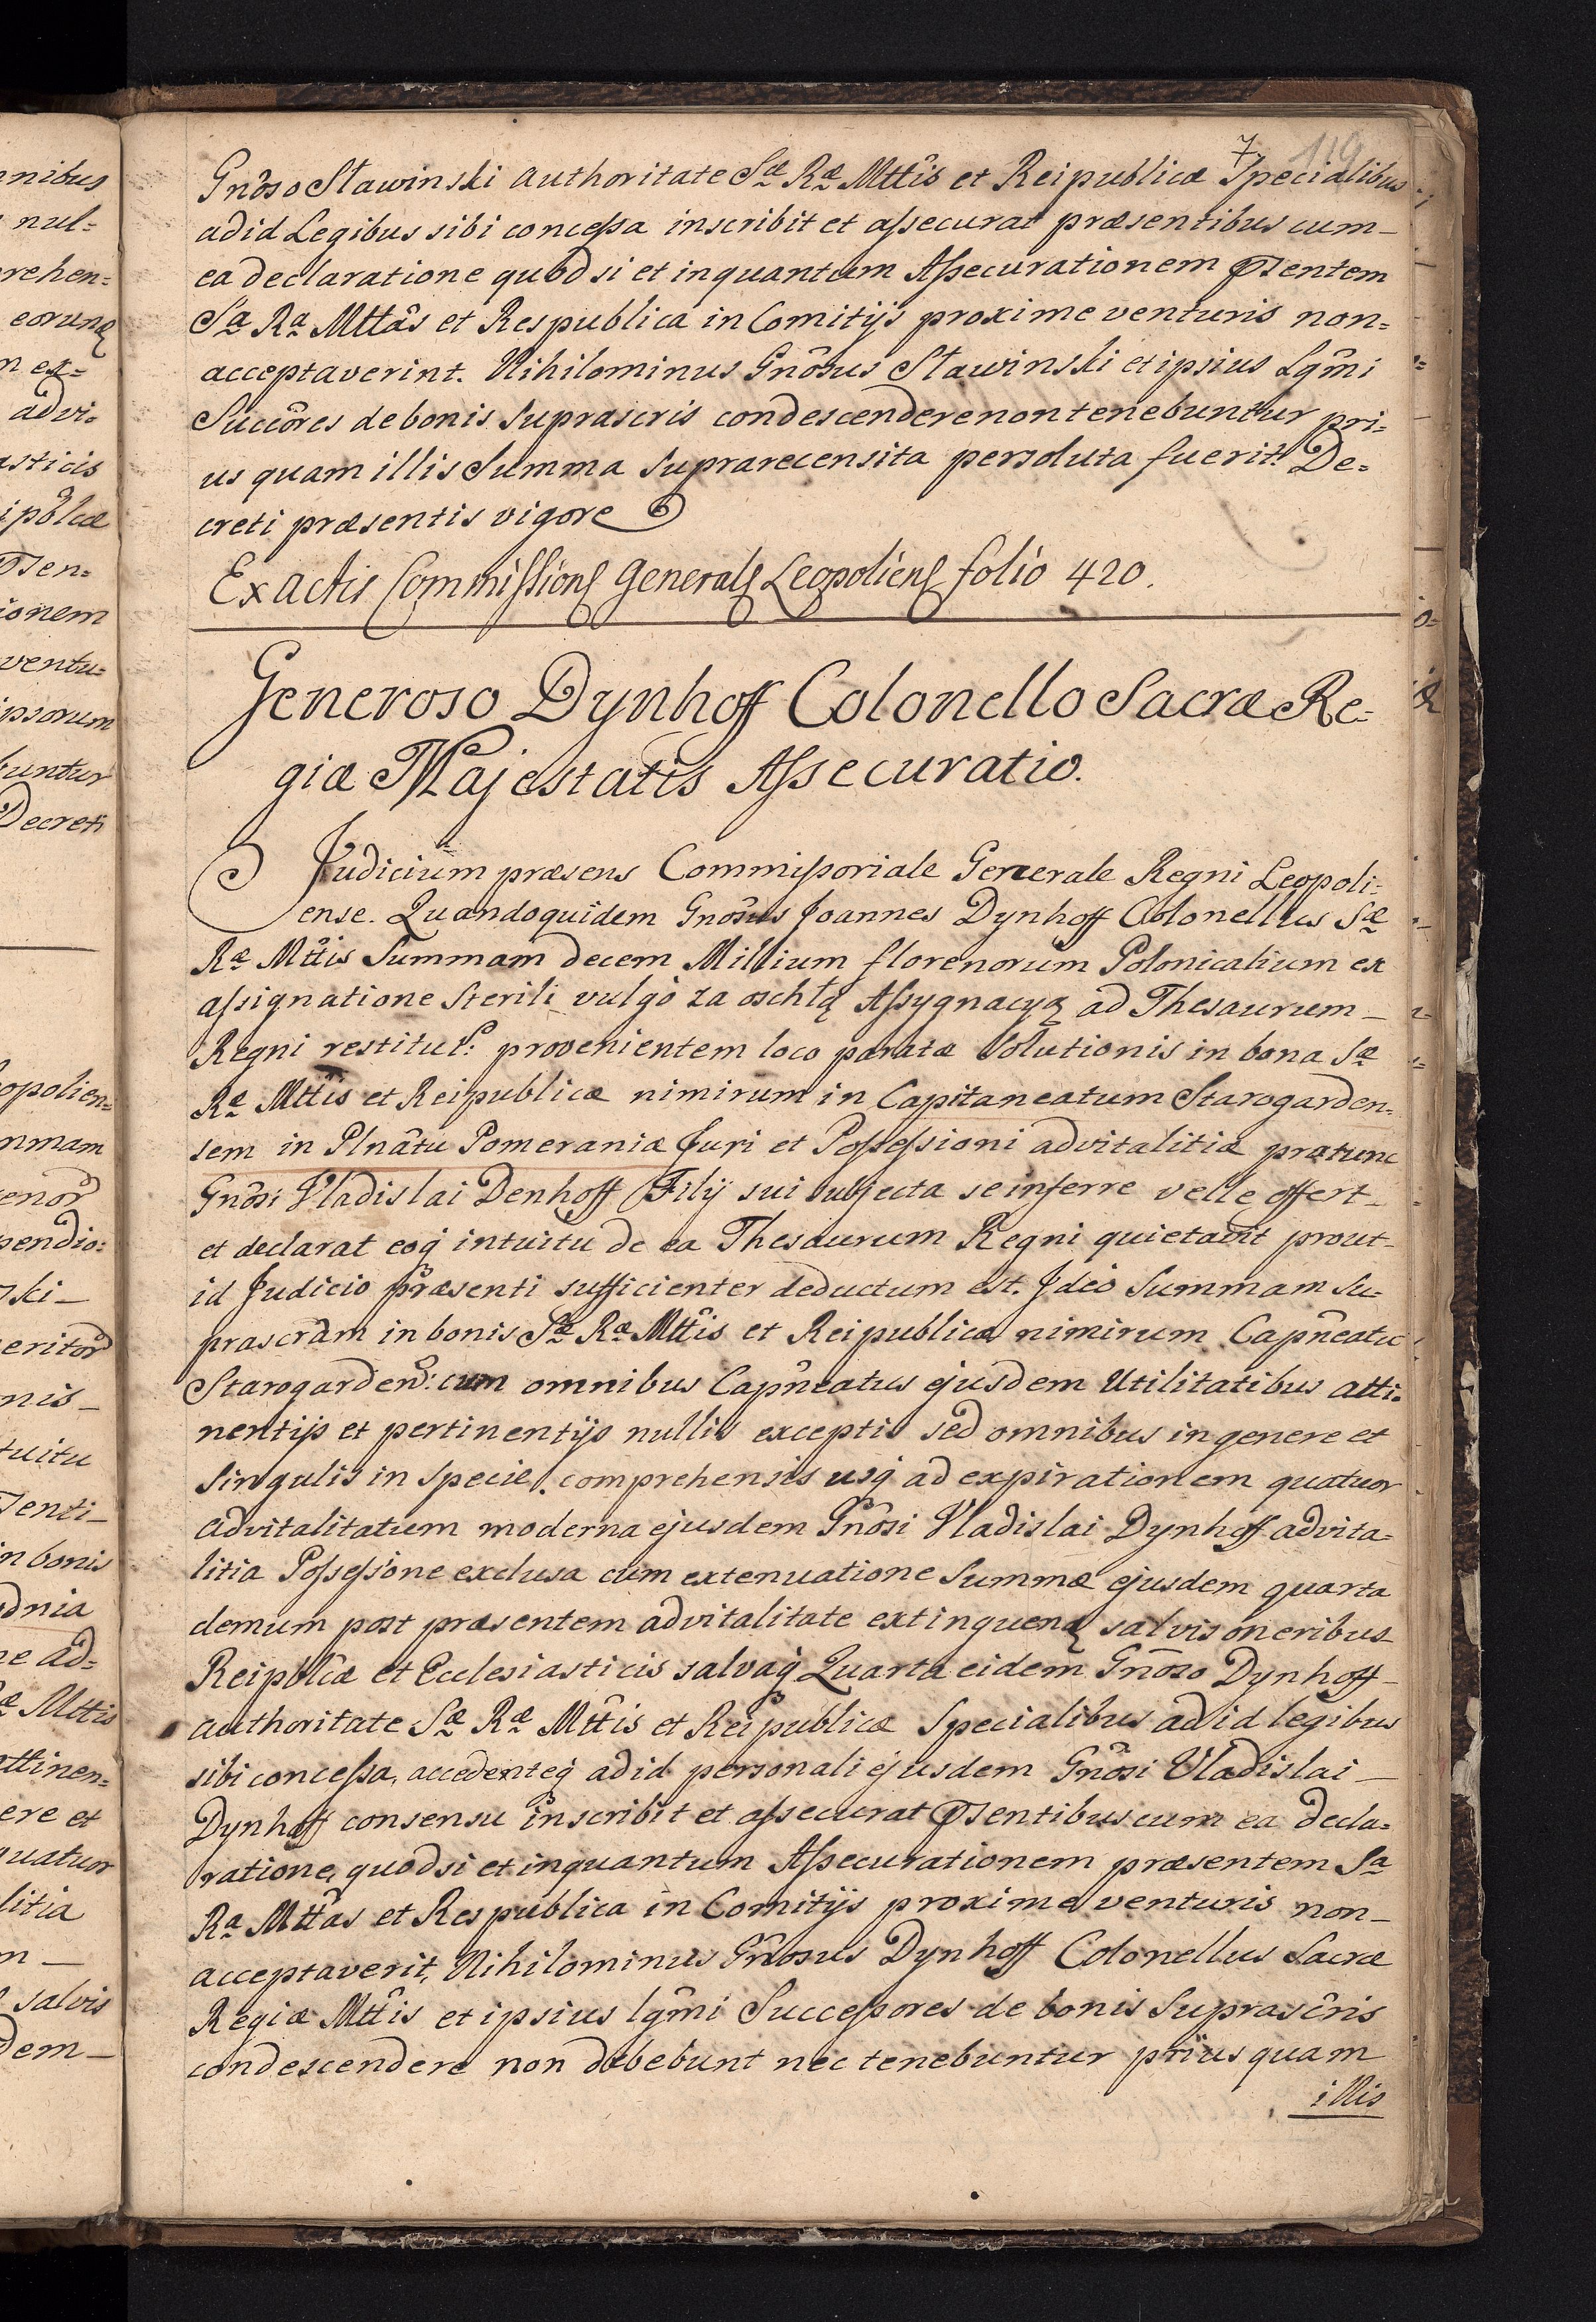 7 119
Gnôso Sławinski authoritate Sæ Ræ Mttîs et Reipublicæ Specialibus
ad id Legibus sibi concessa inscribit et assecurat præsentibus cum_
ea declaratione quod si et inquantum Assecurationem psentem
Sa Ra Mttâs et Respublica in Comitijs proxime venturis non=
acceptaverint. Nihilominus Gnôsus Sławinski et ipsius Lgm̂i
Succôres de bonis Suprascris condescendere non tenebuntur pri=
us quam illis Summa Suprarecensita persoluta fuerit. De=
creti præsentis vigore
Ex actis Commissions Generals Leopoliens folio 420.
Generoso Dynhoff Colonello Sacræ Re=
giæ Majestatis Assecuratio.
Judicium præsens Commissoriale Generale Regni Leopoli=
ense. Quandoquidem Gnôsus Joannes Dynhoff Colonellus Sæ
Ræ Mttîs Summam decem Millium florenorum Polonicalium ex
assignatione Sterili vulgo za oschłą Assygnacyą ad Thesaurum_
Regni restitut: provenientem loco paratæ Solutionis in bona Sæ
Ræ Mttîs et Reipublicæ nimirum in Capitaneatum Starogarden=
sem in Plnâtu Pomeraniæ Juri et Possessioni advitalitiæ prætunc
Gnôsi Vladislai Denhoff Filij sui subjecta se inferre velle offert_
et declarat eoq intuitu de ea Thesaurum Regni quietavit prout_
id Judicio præsenti sufficienter deductum est. Ideo Summam Su=
prascram in bonis Sæ Ræ Mttîs et Reipublicæ nimirum Capn̂eatu
Starogarden: cum omnibus Capn̂eatus ejusdem Utilitatibus atti=
nentijs et pertinentijs nullis exceptis sed omnibus in genere et
Singulis in specie comprehensis usq ad expirationem quatuor
advitalitatum moderna ejusdem Gnôsi Vladislai Dynhoff advita=
litia Possessione exclusa cum extenuatione Summæ ejusdem quarta
demum post præsentem advitalitate extinguenđ salvis oneribus
Reipblicæ et Ecclesiasticis salvaq Quarta eidem Gnôso Dynhoff_
authoritate Sæ Ræ Mttîs et Reipublicæ Specialibus ad id legibus
sibi concessa, accedenteq ad id personali ejusdem Gnôsi Vladislai_
Dynhoff consensu inscribit et assecurat psentibus cum ea decla=
ratione, quod si et inquantum Assecurationem præsentem Sa
Ra Mttâs et Respublica in Comitijs proxime venturis non_
acceptaverit, Nihilominus Gnôsus Dynhoff Colonellus Sacræ
Regiæ Mttîs et ipsius lgm̂i Successores de bonis Suprascr̂is
condescendere non debebunt nec tenebuntur prius quam
illis